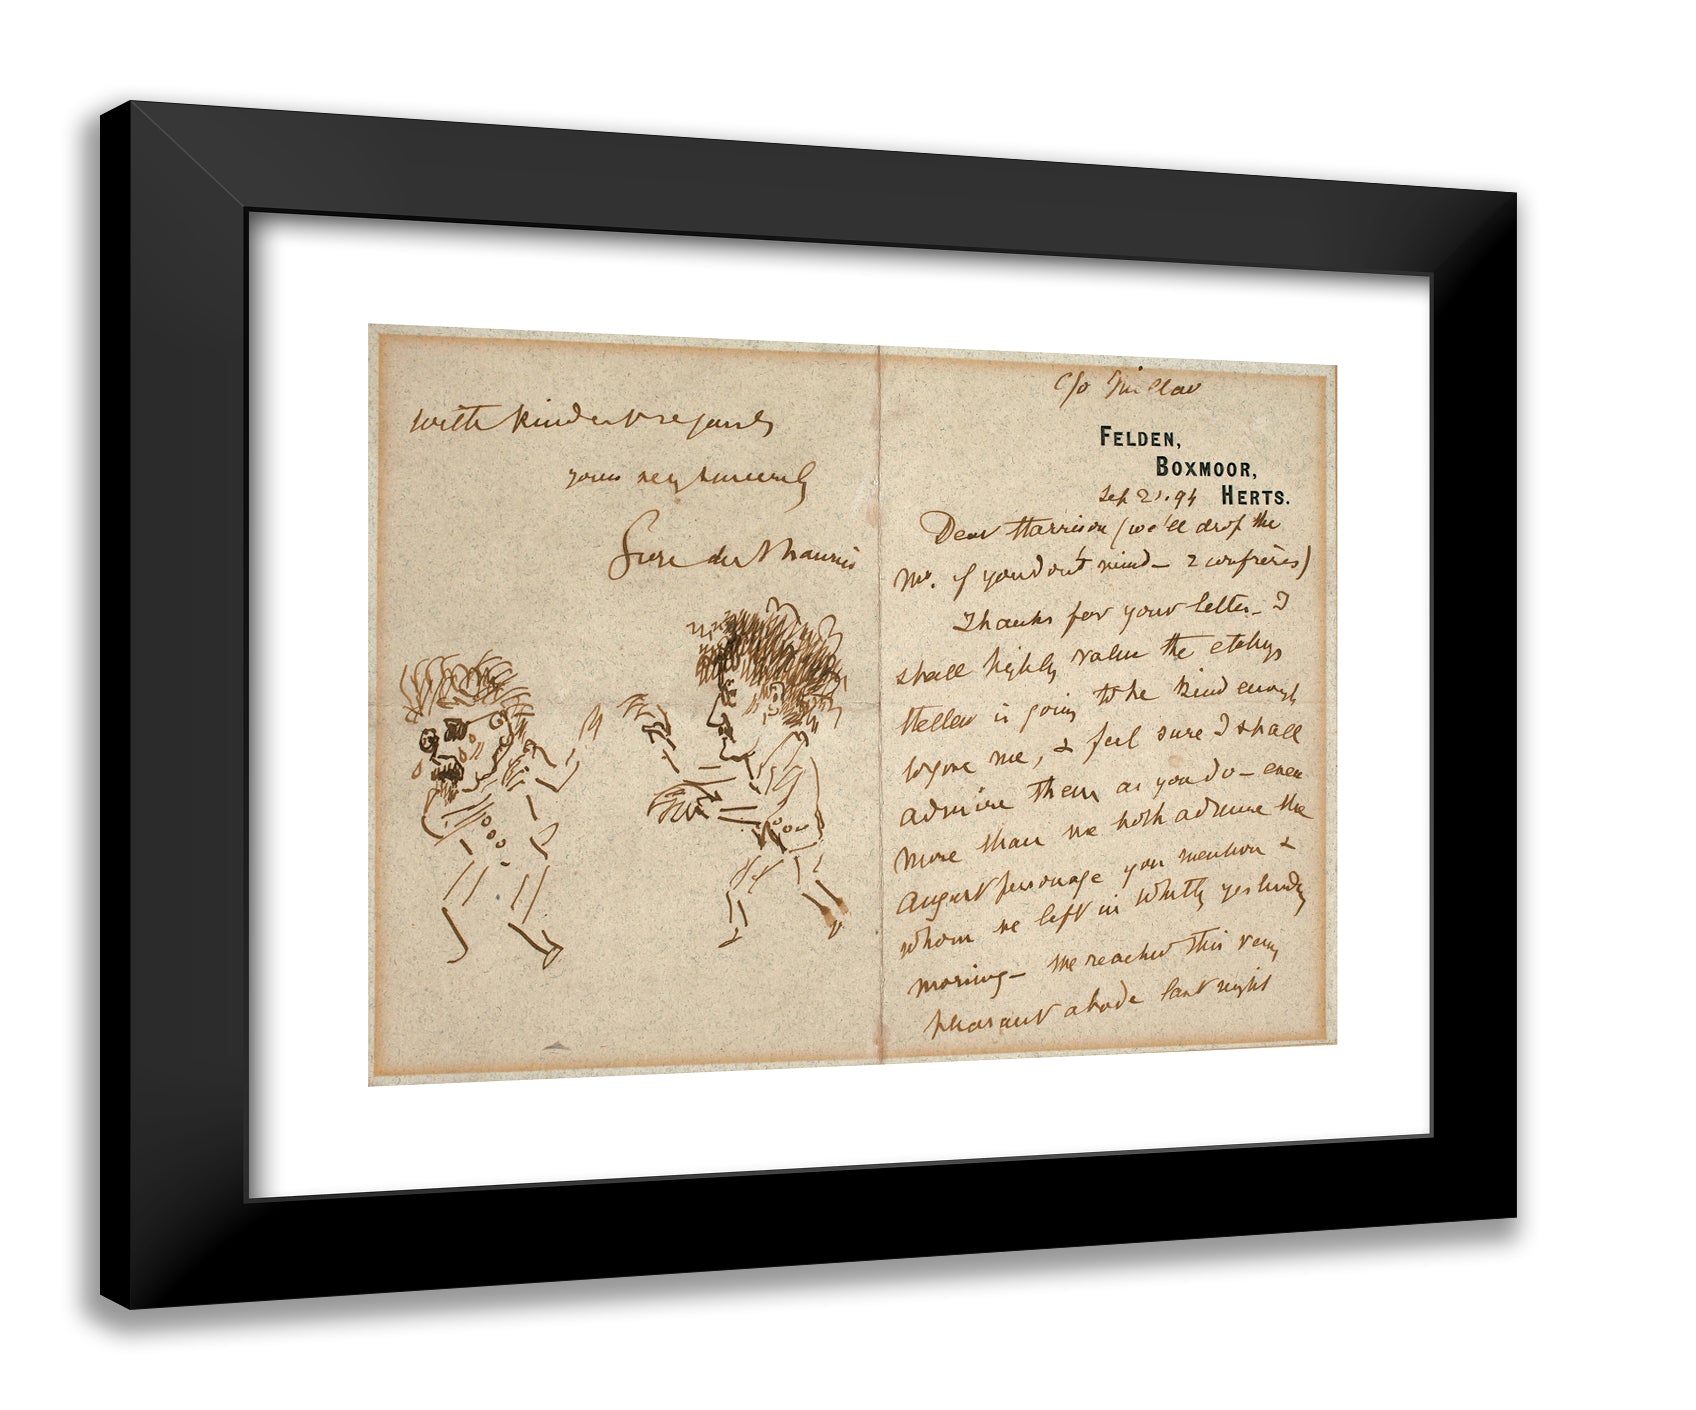 c/o
FELDEN,
BOXMOOR,
Sep 21. 94 HERTS.
Dear Harrison (we'll drop the
Mr. if you don't mind – 2 confrères)
Thanks for your letter – I
shall highly value the etchgs
is going to be kind enough
to give me, & feel sure I shall
admire them as you do – even
more than we both admire the
august personage you mention &
whom we left in Whitby yesterday
morning – We reached this very
pleasant abode last night
With kindest regards
yours very sincerely
du Maurier